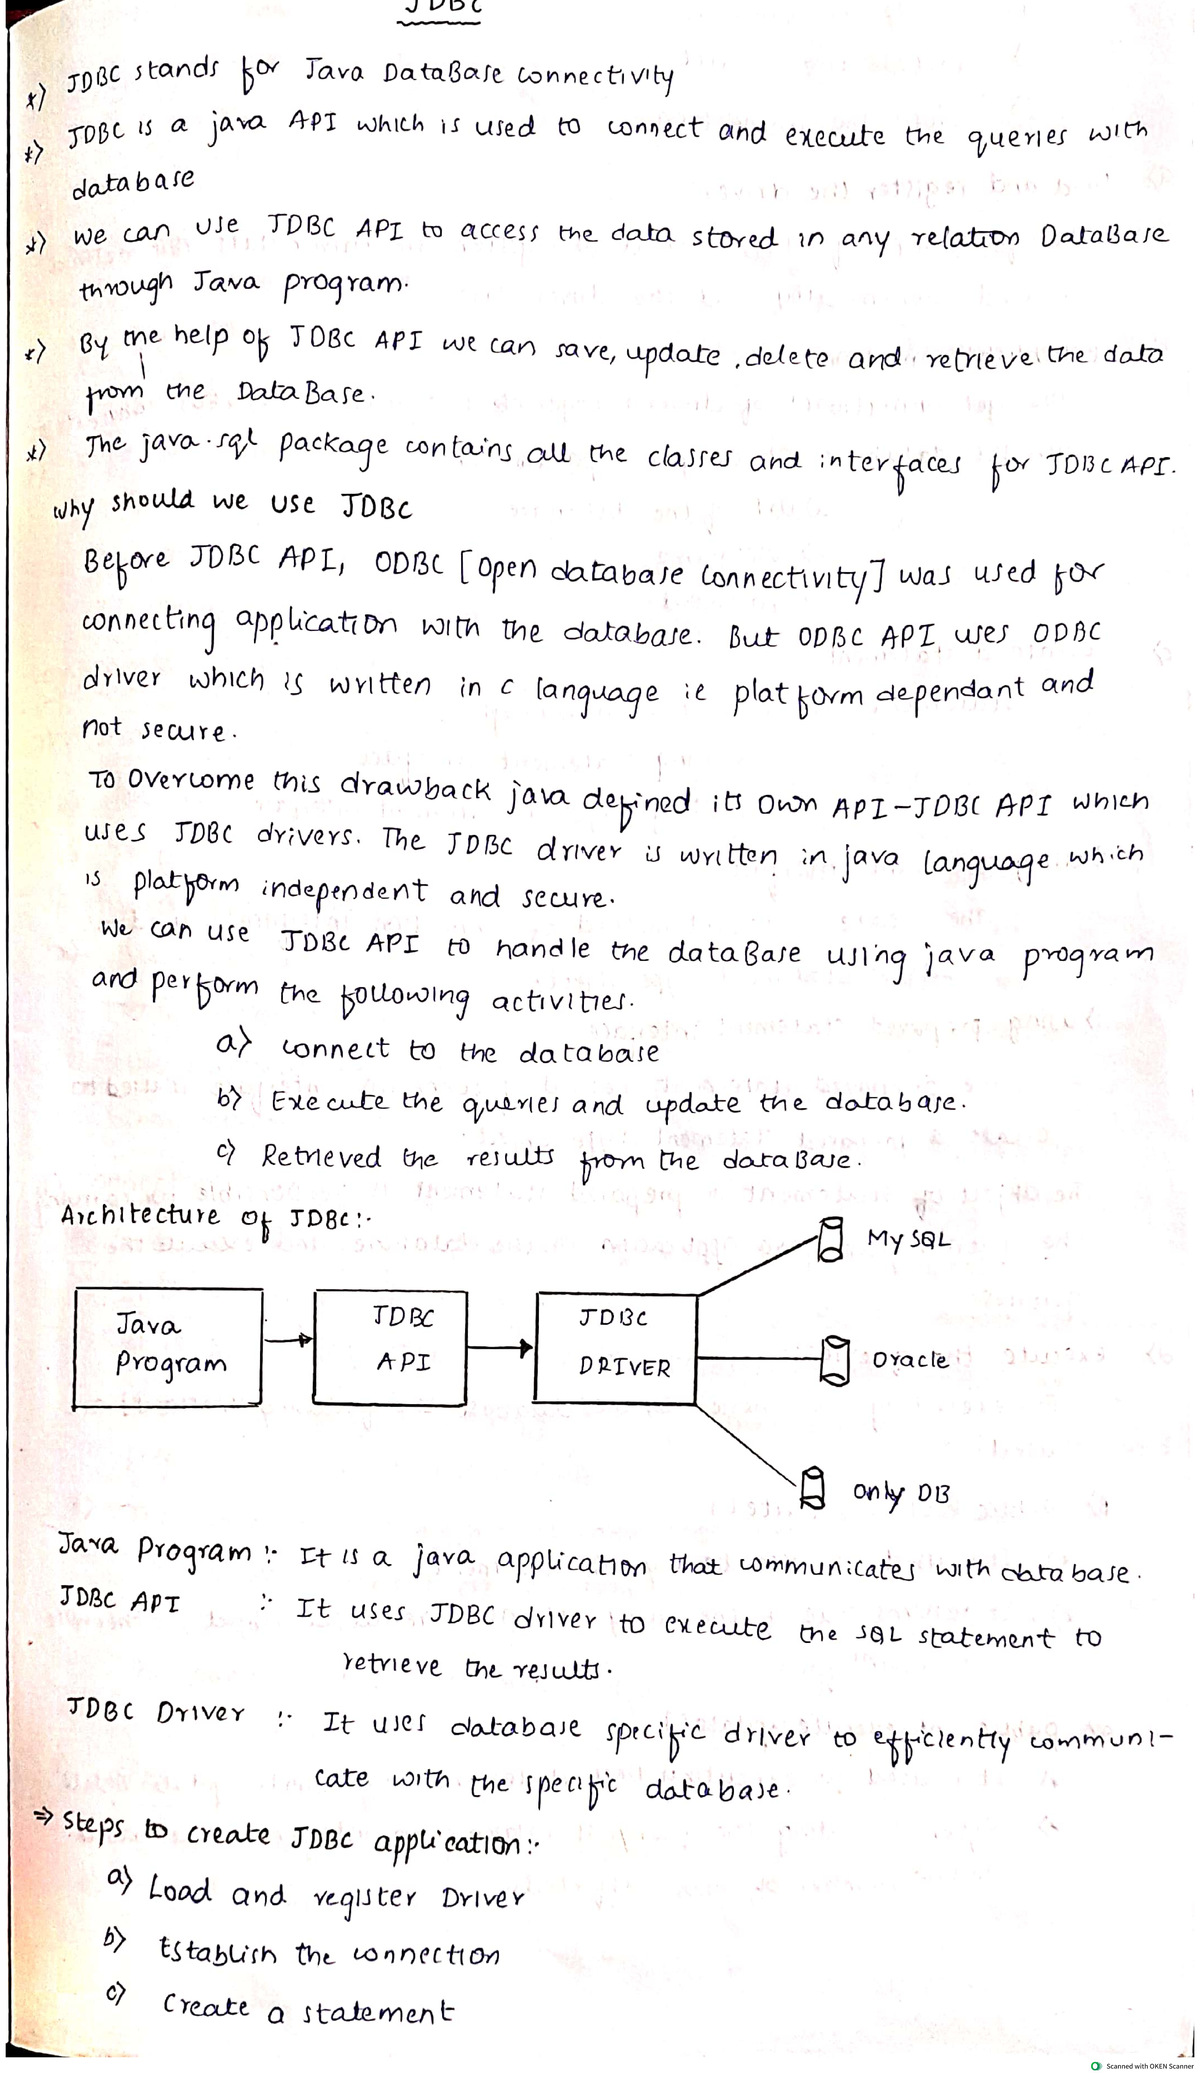 JDBC
*) JDBC stands for Java DataBase connectivity
*) JDBC is a java API which is used to connect and execute the queries with
database
*) we can use JDBC API to access the data stored in any relation DataBase
through Java program.
*) By the help of JDBC API we can save, update, delete and retrieve the data
from the DataBase.
*) The java.sql package contains all the classes and interfaces for JDBC API.
why should we use JDBC
Before JDBC API, ODBC [open database connectivity] was used for
connecting application with the database. But ODBC API uses ODBC
driver which is written in c language ie platform dependant and
not secure.
To overcome this drawback java defined its own API-JDBC API which
uses JDBC drivers. The JDBC driver is written in java language which
is platform independent and secure.
We can use JDBC API to handle the dataBase using java program
and perform the following activities.
a) connect to the database
b) Execute the queries and update the database.
c) Retrieved the results from the dataBase.
Architecture of JDBC:-
MySQL
Java
Program
JDBC
API
JDBC
DRIVER
Oracle
only DB
Java Program :- It is a java application that communicates with database.
JDBC API :- It uses JDBC driver to execute the SQL statement to
retrieve the results.
JDBC Driver :- It uses database specific driver to efficiently communi-
cate with the specific database.
⇒ Steps to create JDBC application:-
a) Load and register Driver
b) Establish the connection
c) Create a statement
Scanned with OKEN Scanner